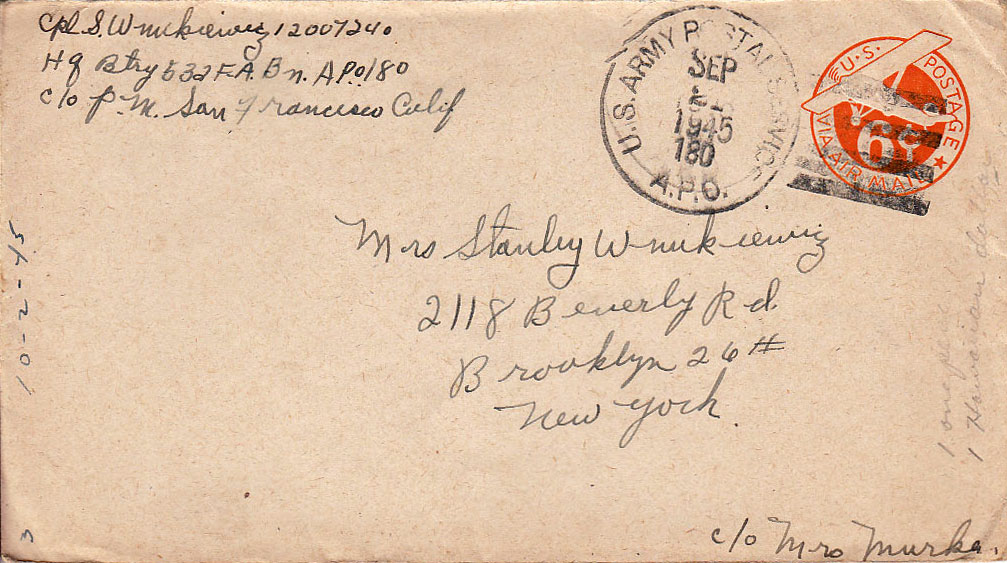 Cpl. S. Wnukiewicz 12007240
Hq Btry 532 F.A. Bn. A.P.O. 180
c/o P.M. San Francisco Calif
U.S. ARMY POSTAL SERVICE
SEP
1945
180
A.P.O.
U.S. POSTAGE
6¢
VIA AIR MAIL
Mrs Stanley Wnukiewicz
2118 Beverly Rd
Brooklyn 26 #
New York
c/o Mrs Murka.
10-2-45
3
1 Hawaiian dollar